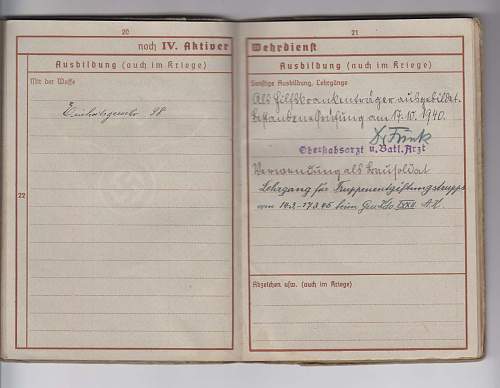 20
noch IV. Aktiver
Ausbildung (auch im Kriege)
Mit der Waffe
22
98
21
Wehrdienst
Ausbildung (auch im Kriege)
Sonstige Ausbildung, Lehrgänge
Als Hilfskrankenträger ausgebildet.
Bestandene Prüfung am 17.10.1940.
Dr. Funk
Oberstabsarzt u. Batl. Arzt
Verwendung als
Lehrgang für Truppenentgiftungstrupps
vom beim
Abzeichen usw. (auch im Kriege)